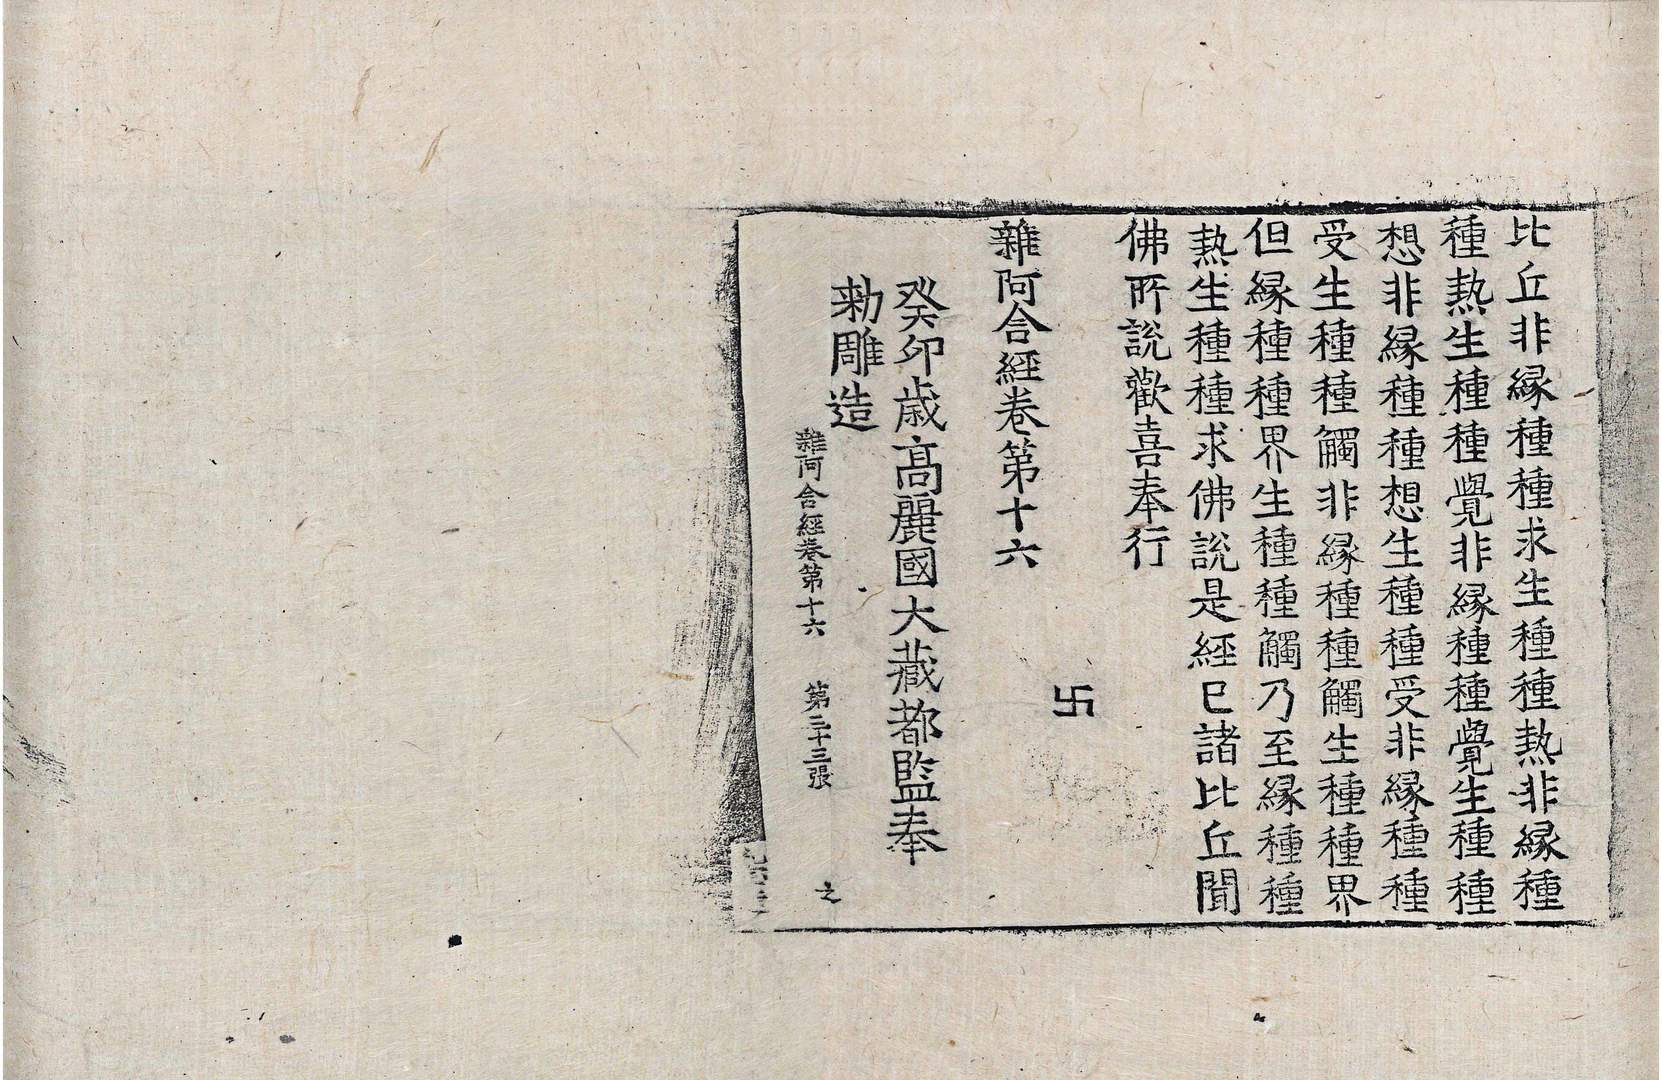 比丘非緣種種求生種種熱非緣種
種熱生種種覺非緣種種覺生種種
想非緣種種想生種種受非緣種種
受生種種觸非緣種種觸生種種界
但緣種種界生種種觸乃至緣種種
熱生種種求佛說是經已諸比丘聞
佛所說歡喜奉行
卐
雜阿含經卷第十六
癸卯歲高麗國大藏都監奉
勅雕造
雜阿含經卷第十六 第三十三張 之